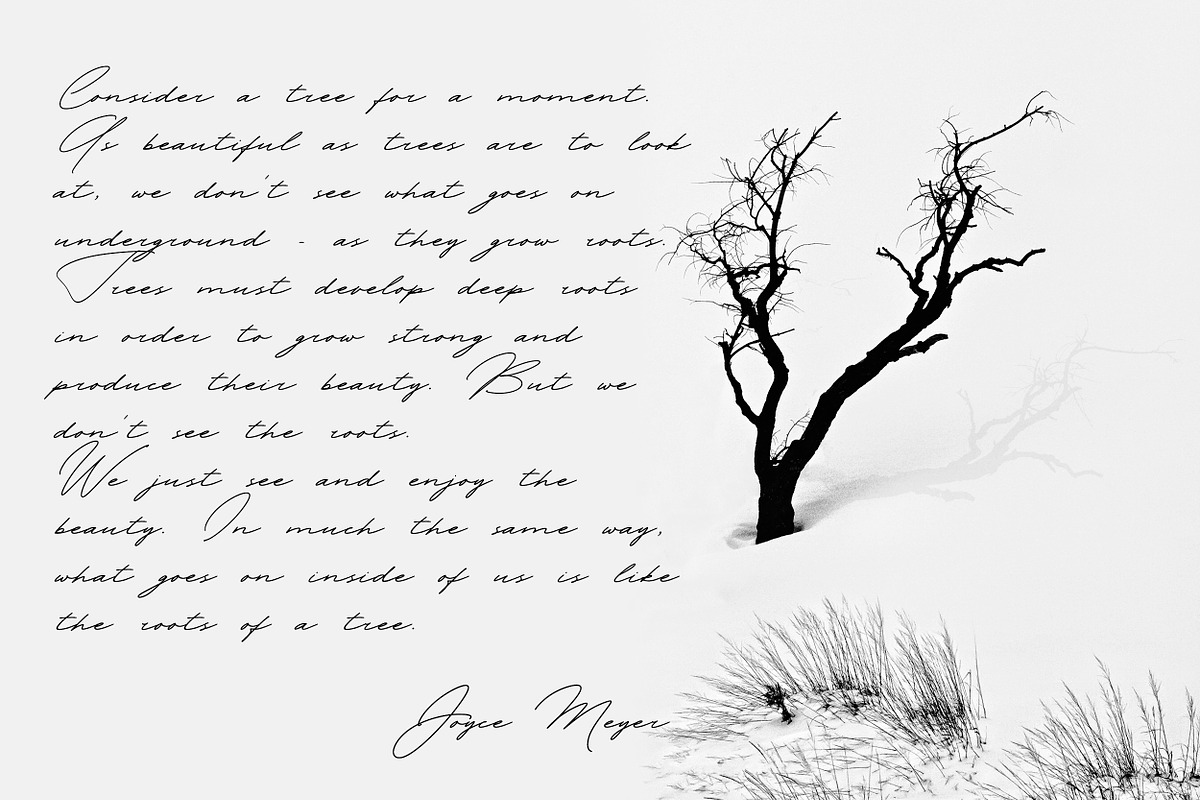 Consider a tree for a moment.
As beautiful as trees are to look
at, we don't see what goes on
underground - as they grow roots.
Trees must develop deep roots
in order to grow strong and
produce their beauty. But we
don't see the roots.
We just see and enjoy the
beauty. In much the same way,
what goes on inside of us is like
the roots of a tree.
Joyce Meyer